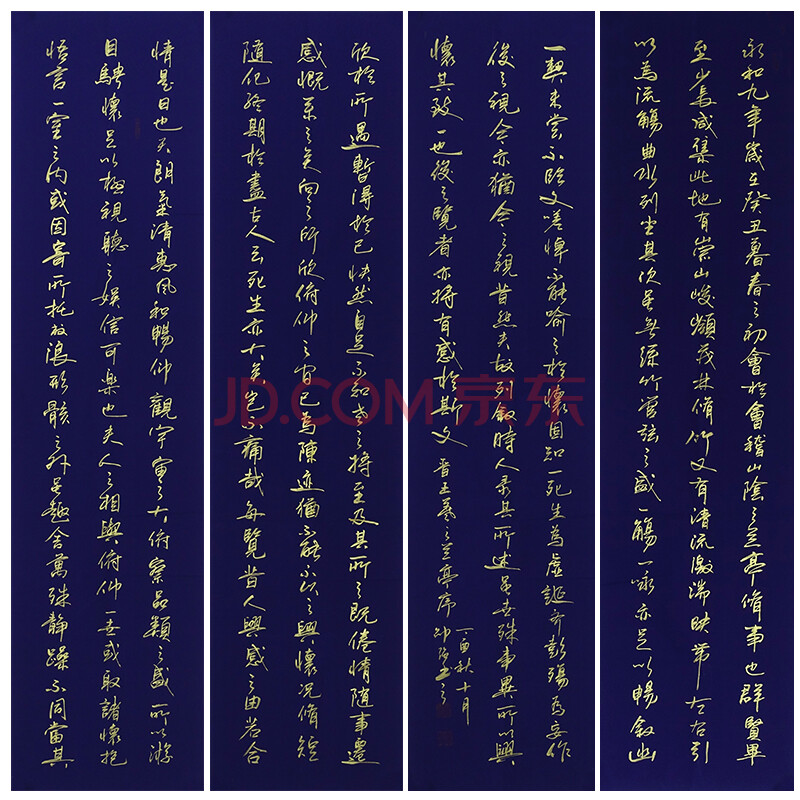 永和九年歲在癸丑暮春之初會於會稽山陰之兰亭脩事也群賢畢
至少長咸集此地有崇山峻嶺茂林脩竹又有清流激湍映帶左右引
以為流觴曲水列坐其次虽無絲竹管弦之盛一觴一詠亦足以暢敘幽
情是日也天朗氣清惠風和暢仰觀宇宙之大俯察品類之盛所以游
目騁懷足以極視聽之娛信可樂也夫人之相與俯仰一世或取諸懷抱
悟言一室之内或因寄所托放浪形骸之外虽趣舍萬殊靜躁不同當其
欣於所遇暫得於己快然自足不知老之將至及其所之既倦情隨事遷
感慨系之矣向之所欣俯仰之間已為陳迹猶不能不以之興懷況脩短
隨化終期於盡古人云死生亦大矣豈不痛哉每覽昔人興感之由若合
一契未嘗不臨文嗟悼不能喻之於懷固知一死生為虛誕齊彭殤為妄作
後之視今亦猶今之視昔悲夫故列敘時人录其所述虽世殊事異所以興
懷其致一也後之覽者亦將有感於斯文 晋王羲之兰亭序
丁酉秋十月
書之
JD.COM 京东